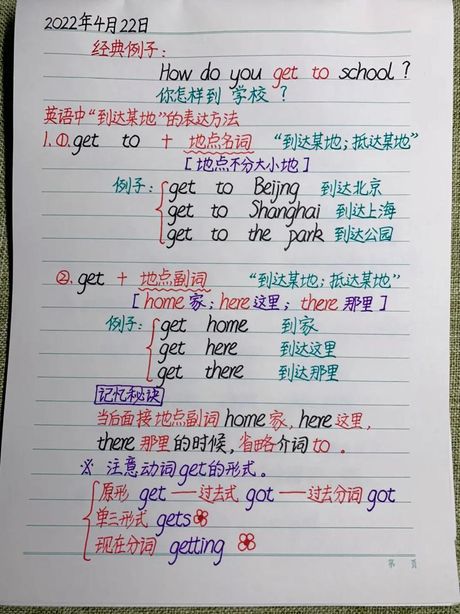 2022年4月22日
经典例子:
How do you get to school?
你怎样到 学校 ?
英语中"到达某地"的表达方法
1.①.get to + 地点名词 "到达某地;抵达某地"
[地点不分大小地]
例子: get to Beijng 到达北京
get to Shanghai 到达上海
get to the park 到达公园
②.get + 地点副词 "到达某地;抵达某地"
[home 家; here 这里; there 那里]
例子: get home 到家
get here 到达这里
get there 到达那里
记忆秘诀
当后面接地点副词 home 家, here 这里,
there 那里的时候,省略介词 to 。
※ 注意动词 get 的形式。
原形 get — 过去式 got — 过去分词 got
单三形式 gets
现在分词 getting
第 页